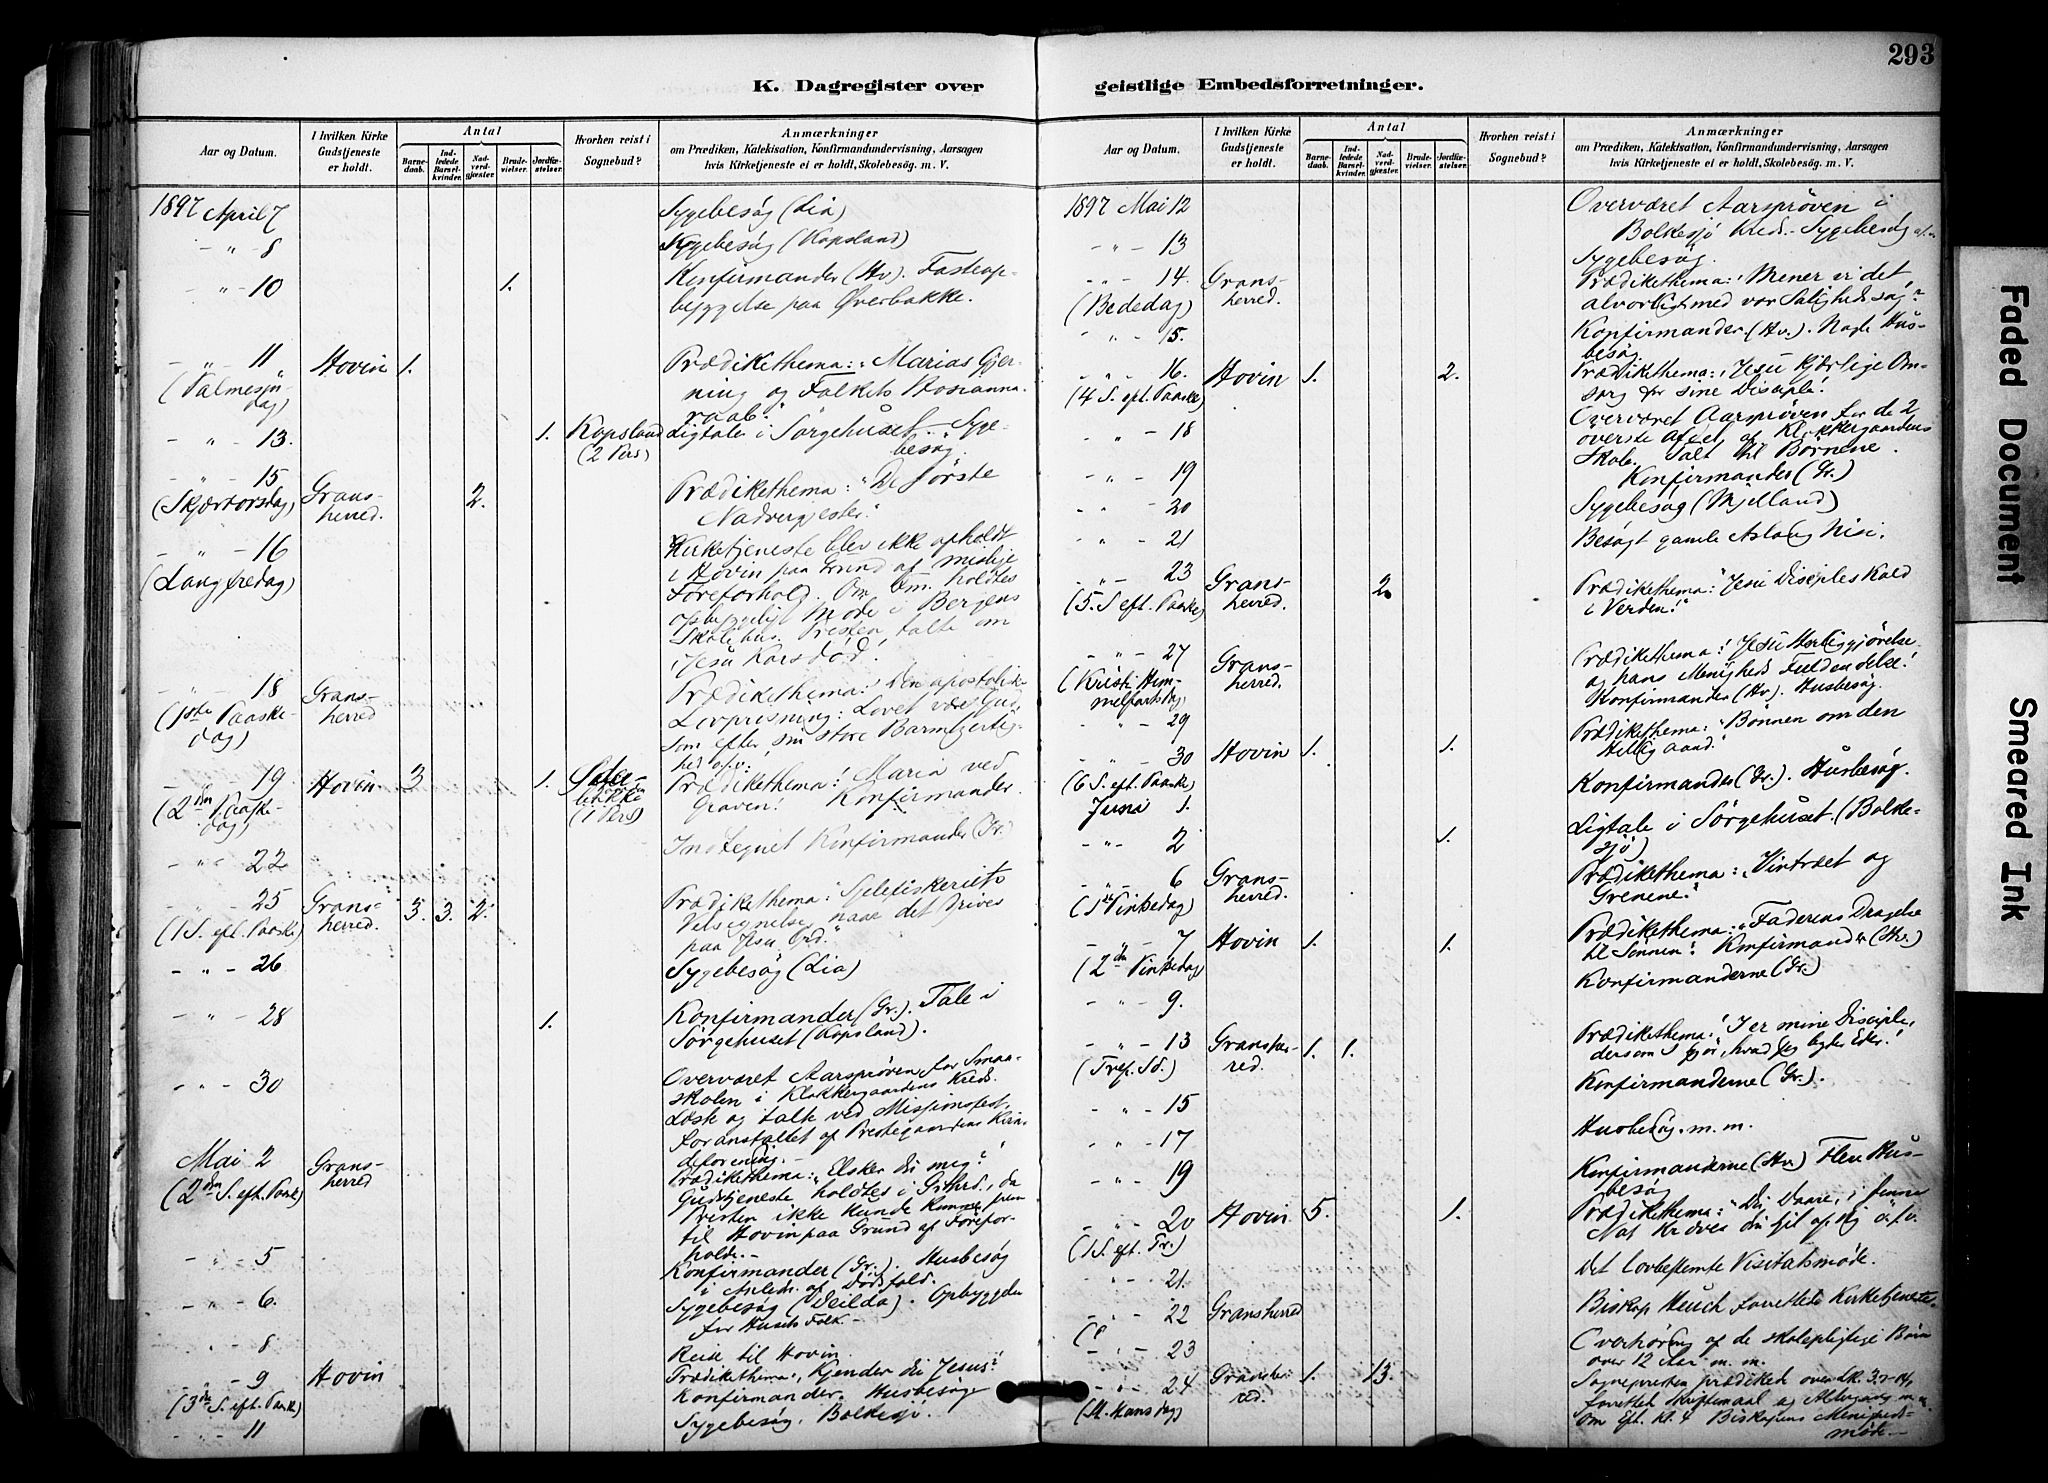 293
K. Dagregister over
geistlige Embedsforretninger.
Aar og Datum.
I hvilken Kirke Gudstjeneste er holdt.
Antal
Barnedaab.
Indledede Barselkvinder.
Nadverdgjæster.
Brudevielser.
Jordfæstelser.
Hvorhen reist i Sognebud?
Anmærkninger
om Prædiken, Katekisation, Konfirmandundervisning, Aarsagen
hvis Kirketjeneste ei er holdt, Skolebesøg. m. V.
1897 April 7 Sygebesøg (Lia)
- " - 8 Sygebesøg (Kopsland)
- " - 10 1. Konfirmander (Hv). Fasteop-
byggelse paa Øverbakke.
- " - 11 Hovin 1. Prædikethema: "Marias Gjer-
(Palmesøn-
dag) ning og Folkets Hosianna-
raab."
- " - 13. 1. Kopsland (2 Pers) Ligtale i Sørgehuset. Syge-
besøg.
- " - 15
(Skjærtorsdag) Grans-
herred. 2. Prædikethema: "De første
Nadvergjester."
- " - 16
(Langfredag) Kirketjeneste blev ikke afholdt
i Hovin paa Grund af mislige
Føreforhold. Om Em. holdtes
opbyggeligt Møde i Bergens
Skolehus. Presten talte om
"Jesu Korsdød."
- " - 18
(1ste Paaske-
dag) Grans-
herred Prædikethema: Den apostoliske
Lovprisning: Lovet være Gud,
som efter sin store Barmhjertig-
hed o.s.v.!
- " - 19
(2den Paaske-
dag) Hovin. 3 1. (1 Pers) Prædikethema: Maria ved
Graven! Konfirmander.
- " - 22 Indtegnet Konfirmander (Gr.)
- " - 25
(1 S. eft. Paaske) Grans-
herred. 5. 3. 2. Prædikethema: Sjelefiskeriets
Velsignelse, naar det drives
paa Jesu Ord."
- " - 26 Sygebesøg (Lia)
- " - 28 1. Konfirmander (Gr.). Tale i
Sørgehuset (Kopsland).
- " - 30 Overværet Aarsprøven for Smaa-
skolen i Klokkergaardens Kreds.
Læste og talte ved Missionsfest,
foranstaltet af Prestegaardens Kvin-
deforening. -
Mai 2
(2den S. eft. Paaske) Grans-
herred Prædikethema: "Elsker du mig?"
Gudstjeneste holdtes i Grhrd., da
Presten ikke kunde komme frem
til Hovin paa Grund af Førefor-
holde. -
- " - 5 Konfirmander (Gr.). Husbesøg
i Anledn. af Dødsfald.
- " - 6. Sygebesøg (Deilda). Opbyggelse
for Husets Folk. -
" 8 Reise til Hovin.
- " - 9
(3die S. eft. Paaske) Hovin Prædikethema: Kjender du Jesus?
Konfirmander. Husbesøg
- " - 11 Sygebesøg, Bolkesjø.
Aar og Datum.
I hvilken Kirke Gudstjeneste er holdt.
Antal
Barnedaab.
Indledede Barselkvinder.
Nadverdgjæster.
Brudevielser.
Jordfæstelser.
Hvorhen reist i Sognebud?
Anmærkninger
om Prædiken, Katekisation, Konfirmandundervisning, Aarsagen
hvis Kirketjeneste ei er holdt, Skolebesøg. m. V.
1897 Mai 12 Overværet Aarsprøven i
Bolkesjø Kreds. - Sygebesøg
- " - 13 Sygebesøg.
- " - 14.
(Bededag) Grans-
herred. Prædikethema: "Mener vi det
alvorligt med vor Saligheds sag?"
- " - 15. Konfirmander. (Hv.). Nogle Hus-
besøg.
- " - 16.
(4 S. eft. Paaske) Hovin 1. 2. Prædikethema: "Jesu kjærlige Om-
sorg for sine Disciple."
- " - 18 Overværet Aarsprøven for de 2
øverste af Klokkergaardens
Skole. Talt til Børnene.
- " - 19 Konfirmander (Gr.)
- " - 20 Sygebesøg (Mjelland)
- " - 21 Besøgt gamle Aslaug Nisi.
- " - 23
(5. S eft. Paaske) Grans-
herred. 2. Prædikethema: "Jesu Disciples Kald
i Verden!"
- " - 27
(Kristi Him-
melfartsdag) Grans-
herred. Prædikethema: "Jesu Herliggjørelse
og hans Menigheds Fuldendelse."
- " - 29 Konfirmander (Hv). Husbesøg.
30
(6 S. eft. Paaske) Hovin 1. 1. Prædikethema: "Bønnen om den
Hellig Aand."
Juni 1. Konfirmander (Gr.). Husbesøg.
- " - 2 1. Ligtale i Sørgehuset. (Bolke-
sjø)
- " - 6
(1ste Pinsedag) Grans-
herred. Prædikethema: "Vintræet og
Grenene."
- " - 7
(2den Pinsedag) Hovin 1. 1. Prædikethema: "Faderens Dragelse
til Sønnen." Konfirmander (Hv.)
- " - 9. Konfirmanderne (Gr.)
- " - 13
(Tref. Sd.) Gransher-
red. 1. 1. Prædikethema: "I er mine Disciple,
dersom I gjør, hvad jeg byder Eder."
- " - 15 Konfirmanderne (Gr.).
- " - 17 Husbesøg. m. m.
- " - 19 Konfirmanderne (Hv.) Flere Hus-
besøg
- " - 20
(1 S. eft. Tr.) Hovin. 5. 1. Prædikethema: "Du Daare, i denne
Nat kræves din Sjæl af dig o.s.v.
- " - 21 Det lovbestemte Visitatsmøde.
- " - 22 Gransherred Biskop Heuch forrettede Kirketjeneste.
- " - 23 Overhøring af de skolepligtige Børn
over 12 Aar m. m.
- " - 24
(St. Hansdag) Gransher-
red. 1. 13. Sognepresten prædikede over Lk. 3.
forrettet Skriftemaal og Altergang m.
Om Eft. Kl. 4 Biskopens Menigheds-
møde. -
Faded Document
Smeared Ink